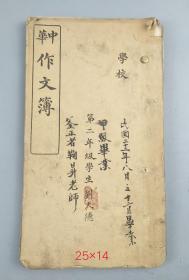 中華
作文簿
學校
民國三十一年八月二十六日畢業
甲級畢業
第二年級學生劉大德
鞠昇老師
25×14